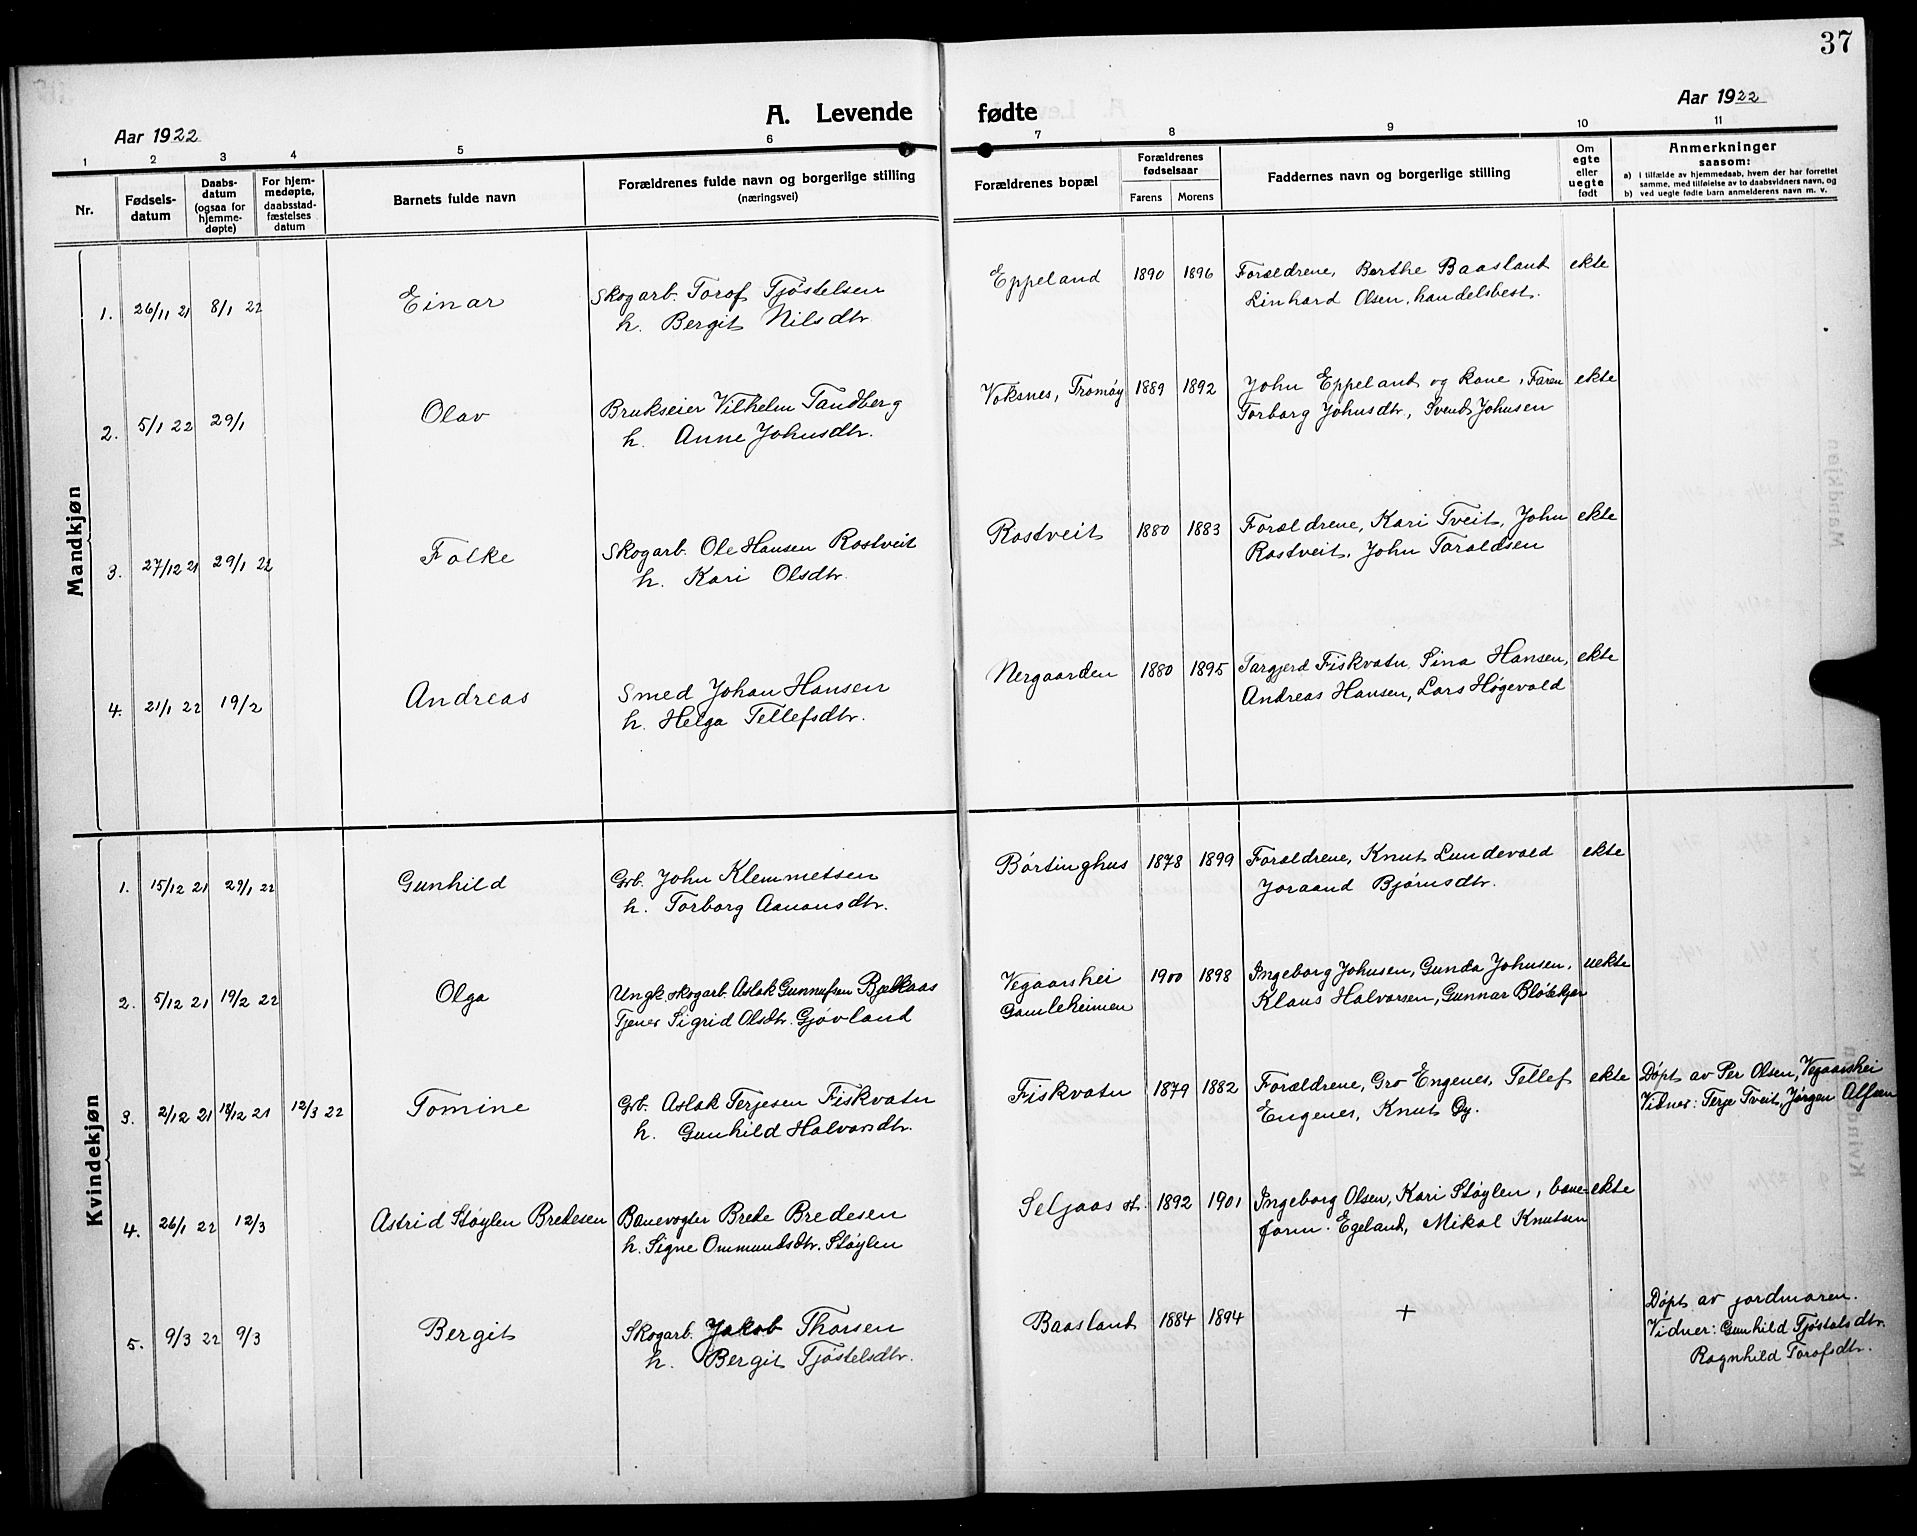 37
A. Levende fødte
Aar 1922
Aar 1922
1 2 3 4 5 6 7 8 9 10 11
Nr.
Fødsels-
datum
Daabs-
datum
(ogsaa for
hjemme-
døpte)
For hjem-
medøpte,
daabsstad-
fæstelses
datum
Barnets fulde navn
Forældrenes fulde navn og borgerlige stilling
(næringsvei)
Forældrenes bopæl
Forældrenes
fødselsaar
Farens Morens
Faddernes navn og borgerlige stilling
Om
egte
eller
uegte
født
Anmerkninger
saasom:
a) i tilfælde av hjemmedaab, hvem der har forrettet
samme, med tilføielse av to daabsvidners navn, og
b) ved uegte fødte barn anmelderens navn m. v.
Mandkjøn
1. 26/11 21 8/1 22 Einar Skogarb. Torof Tjøstelsen Eppeland 1890 1896 Forældrene, Berthe Baasland ekte
h. Bergit Nilsdtr. Linhard Olsen, handelsbest.
2. 5/1 22 29/1 Olav Brukseier Vilhelm Tandberg Voksnes, Tromøy 1889 1892 John Eppeland og kone, Faren ekte
h. Anne Johnsdtr. Torborg Johnsdtr, Svend Johnsen
3. 27/12 21 29/1 22 Folke Skogarb. Ole Hansen Rostveit Rostveit 1880 1883 Forældrene, Kari Tveit, John ekte
h. Kari Olsdtr. Rostveit, John Taraldsen
4. 21/1 22 19/2 Andreas Smed Johan Hansen Nergaarden 1880 1895 Targjerd Fiskvatn, Sina Hansen, ekte
h. Helga Tellefsdtr. Andreas Hansen, Lars Høgevold
Kvindekjøn
1. 15/12 21 29/1 22 Gunhild Grb. John Klemmetsen Børtinghus 1878 1899 Forældrene, Knut Lundevold ekte
h. Torborg Aanonsdtr. Joraand Bjørnsdtr.
2. 5/12 21 19/2 22 Olga Ungk. skogarb. Aslak Gunnufsen Bjelkaas Vegaarshei 1900 1898 Ingeborg Johnsen, Gunda Johnsen, uekte
Tjener Sigrid Olsdtr. Gjøvland Gamleheimen Klaus Halvorsen, Gunnar Bløtekjær
3. 2/12 21 18/12 21 12/3 22 Tomine Grb. Aslak Terjesen Fiskvatn Fiskvatn 1879 1882 Forældrene, Gro Engenes, Tellef ekte Døpt av Per Olsen, Vegaarshei
h. Gunhild Halvorsdtr. Engenes, Knut Øy. Vidner: Terje Tveit, Jørgen Alfsen
4. 26/1 22 12/3 Astrid Støylen Bredesen Banevogter Brede Bredesen Seljaas st. 1892 1901 Ingeborg Olsen, Kari Støylen, bane- ekte
h. Signe Ommundsdtr. Støylen form. Egeland, Mikal Knutsen
5. 9/3 22 9/3 Bergit Skogarb. Jakob Thorsen Baasland 1884 1894 + Døpt av jordmoren.
h. Bergit Tjøstelsdtr. Vidner: Gunhild Tjøstolsdtr.
Ragnhild Torofsdtr.